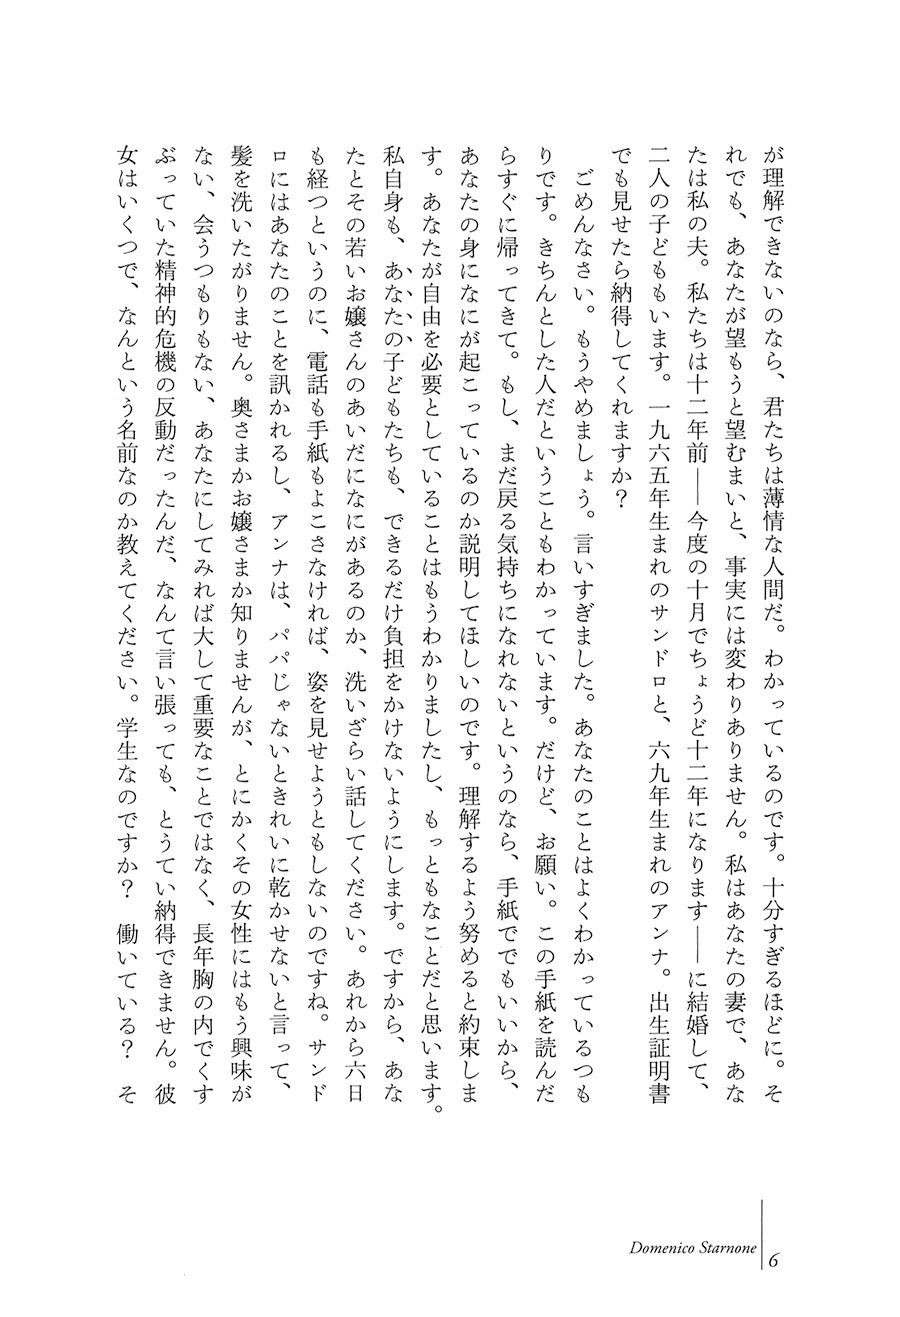 が理解できないのなら、君たちは薄情な人間だ。わかっているのです。十分すぎるほどに。そ
れでも、あなたが望もうと望むまいと、事実には変わりありません。私はあなたの妻で、あな
たは私の夫。私たちは十二年前――今度の十月でちょうど十二年になります――に結婚して、
二人の子どももいます。一九六五年生まれのサンドロと、六九年生まれのアンナ。出生証明書
でも見せたら納得してくれますか？
　ごめんなさい。もうやめましょう。言いすぎました。あなたのことはよくわかっているつも
りです。きちんとした人だということもわかっています。だけど、お願い。この手紙を読んだ
らすぐに帰ってきて。もし、まだ戻る気持ちになれないというのなら、手紙ででもいいから、
あなたの身になにが起こっているのか説明してほしいのです。理解するよう努めると約束しま
す。あなたが自由を必要としていることはもうわかりましたし、もっともなことだと思います。
私自身も、あなたの子どもたちも、できるだけ負担をかけないようにします。ですから、あな
たとその若いお嬢さんのあいだになにがあるのか、洗いざらい話してください。あれから六日
も経つというのに、電話も手紙もよこさなければ、姿を見せようともしないのですね。サンド
ロにはあなたのことを訊かれるし、アンナは、パパじゃないときれいに乾かせないと言って、
髪を洗いたがりません。奥さまかお嬢さまか知りませんが、とにかくその女性にはもう興味が
ない、会うつもりもない、あなたにしてみれば大して重要なことではなく、長年胸の内でくす
ぶっていた精神的危機の反動だったんだ、なんて言い張っても、とうてい納得できません。彼
女はいくつで、なんという名前なのか教えてください。学生なのですか？　働いている？　そ
Domenico Starnone
6